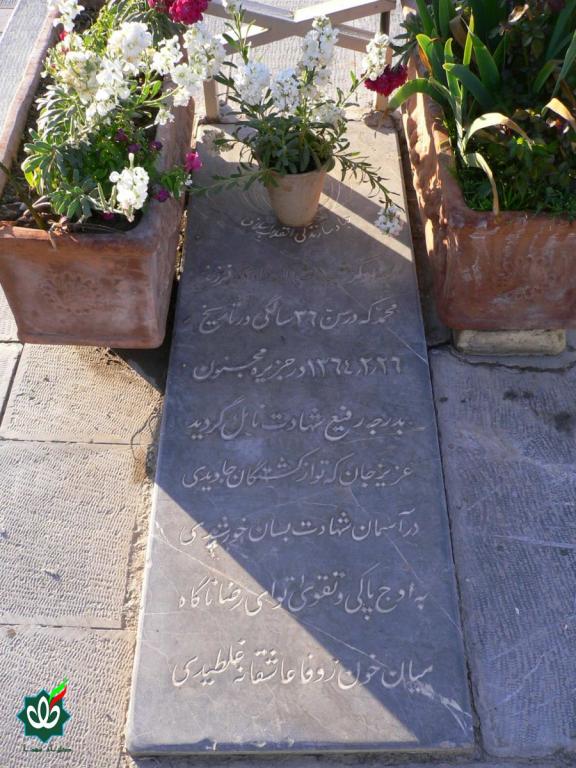 جهاد سازندگی
فرزند
محمد که در سن ۲۶ سالگی در تاریخ
۱۳۶۴/۲/۲۶ در جزیره مجنون
بدرجه رفیع شهادت نایل گردید
عزیز جان که تو از کشتگان جاویدی
در آسمان شهادت بسان خورشیدی
به اوج پاکی و تقوی توای رضا ناگاه
میان خون ز وفا عاشقانه غلطیدی